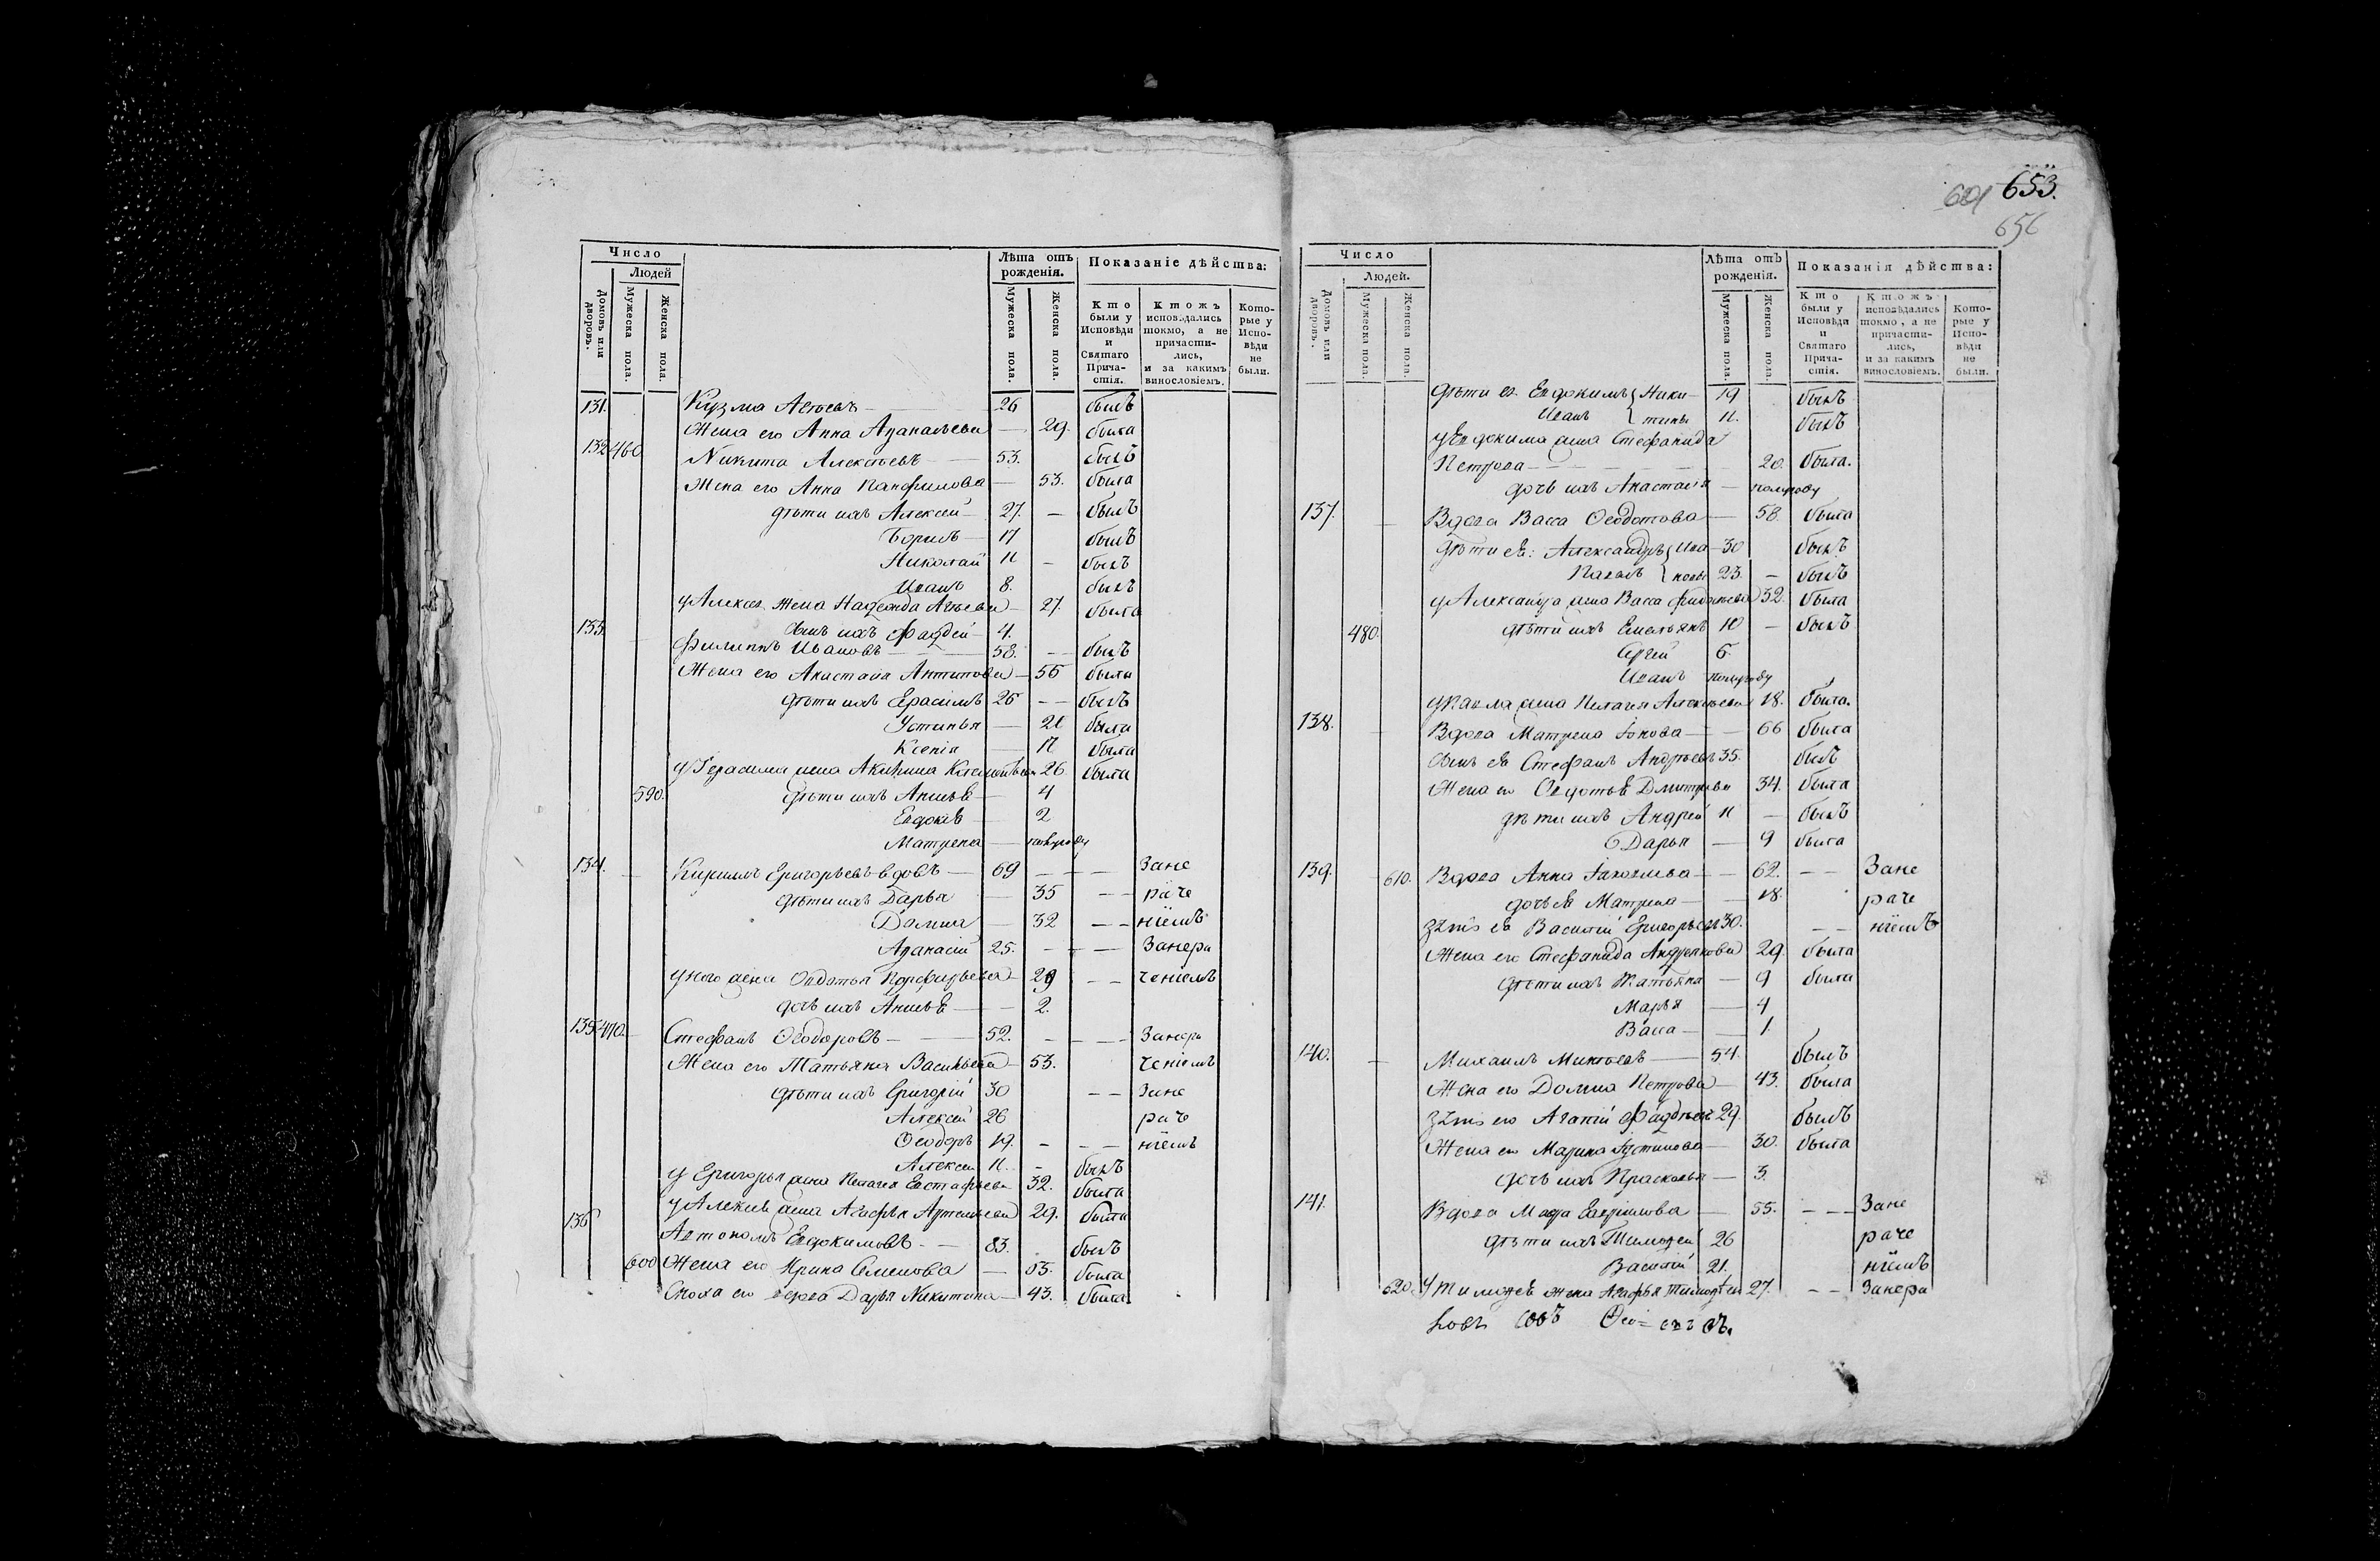 653.
601
656
Число
Людей
Домовъ или дворовъ.
Мужеска пола.
Женска пола.
Лѣта отъ рожденія.
Мужеска пола.
Женска пола.
Показаніе дѣйства:
Кто были у Исповѣди и Святаго Причастія.
Ктожъ исповѣдались токмо, а не причастились, и за какимъ винословіемъ.
Которые у Исповѣди не были.
131. Кузма 26 былъ
Жена его Анна 29. была
132 460 Никита Алексѣевъ 53. былъ
Жена его Анна Панфилова 53. была
дѣти ихъ Алексей 27. былъ
Борисъ 17 былъ
Николай 11 былъ
Иванъ 8. былъ
у Алексея жена Надежда 27. была
133. сынъ ихъ Фаддей 4.
Филиппъ Ивановъ 58. былъ
Жена его Анастасія Антипова 55 была
дѣти ихъ Герасимъ 25 былъ
Устинья 20 была
Ксенія 17 была
у Герасима жена Акилина 26 была
590. дѣти ихъ Анисья 4
Евдокія 2
Матрена полугоду
134. Кирилъ Григорьевъ вдовъ 69 Зане
дѣти ихъ Дарья 35 раче
Домна 32 ніемъ
Аѳанасій 25. Занера
у него жена Порфирьева 29 ченіемъ
дочь ихъ Анисья 2.
135. 470. Стефанъ Ѳеодоровъ 52. Занера
Жена его Татьяна Васильева 53. ченіемъ
дѣти ихъ Григорій 30 Зане
Алексей 26 раче
Ѳеодоръ 19. ніемъ
Алексей 11. былъ
у Григорья жена Пелагея Евстафьева 32. была
у Алексея жена Агафья Артемьева 29. была
136 Автономъ Евдокимовъ 83. былъ
600 Жена его Ирина Семенова 53. была
Сноха его вдова Дарья Никитина 43. была
Число
Людей.
Домовъ или дворовъ.
Мужеска пола.
Женска пола.
Лѣта отъ рожденія.
Мужеска пола.
Женска пола.
Показанія дѣйства:
Кто были у Исповѣди и Святаго Причастія.
Ктожъ исповѣдались токмо, а не причастились, и за какимъ винословіемъ.
Которые у Исповѣди не были.
дѣти ея Евдокимъ { Ники 19 былъ
Иванъ { тины 11. былъ
у Евдокима жена Стефанида
Петрова 20. была.
дочь ихъ Анастасія полугоду
137. Вдова Васса Ѳеодотова 58. была
дѣти ея: Александръ { Ива 30 былъ
Павелъ { новы 23. былъ
у Александра жена Васса 32. была
480. дѣти ихъ Емельянъ 10 былъ
Сергей 6.
Иванъ полугоду
у Павла жена Пелагея Алексѣева 18. была.
138. Вдова Матрена 66 была
сынъ ея Стефанъ Андреевъ 35. былъ
Жена его Ѳедотья Дмитріева 34. была
дѣти ихъ Андрей 11 былъ
Дарья 9 была
139. 610. Вдова Анна Іаковлева 62. Зане
дочь ея Матрена 18. раче
зять ея Василій Григорьевъ 30. ніемъ
Жена его Стефанида 29. была
дѣти ихъ Татьяна 9 была
Марья 4
Васса 1.
140. Михаилъ 54. былъ
Жена его Домна Петрова 43. была
зять его Агапій Фаддеевъ 29. былъ
Жена его Марина Іустинова 30. была
дочь ихъ Прасковья 3.
141. Вдова 55. Зане
дѣти ихъ Тимофей 26 раче
Василій 21. ніемъ
620. у Тимофея жена Агафья 27. Занера